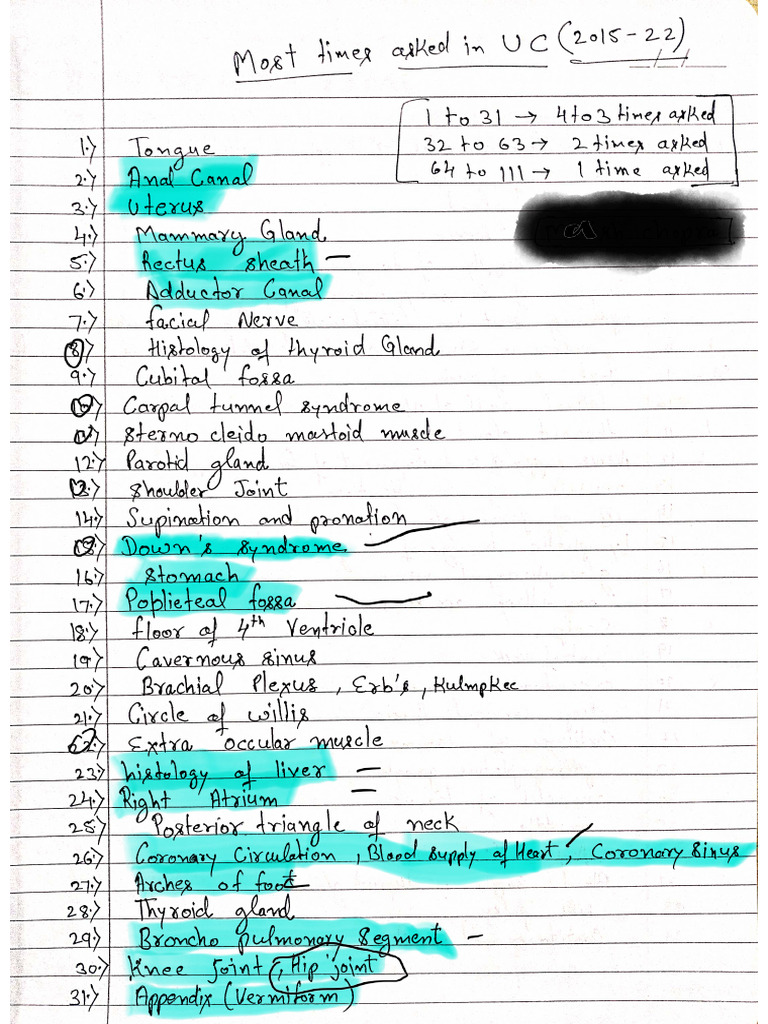 Most times asked in UC (2015-22)
1 to 31 → 4 to 3 times asked
32 to 63 → 2 times asked
64 to 111 → 1 time asked
1.) Tongue
2.) Anal Canal
3.) Uterus
4.) Mammary Gland
5.) Rectus sheath
6.) Adductor Canal
7.) facial Nerve
8.) Histology of thyroid Gland
9.) Cubital fossa
10.) Carpal tunnel syndrome
11.) Sterno cleido mastoid muscle
12.) Parotid gland
13.) Shoulder Joint
14.) Supination and pronation
15.) Down's syndrome
16.) Stomach
17.) Poplieteal fossa
18.) floor of 4th Ventricle
19.) Cavernous sinus
20.) Brachial Plexus, Erb's, Kulmpkec
21.) Circle of willis
22.) Extra occular muscle
23.) histology of liver
24.) Right Atrium
25.) Posterior triangle of neck
26.) Coronary Circulation, Blood supply of Heart, Coronary sinus
27.) Arches of foot
28.) Thyroid gland
29.) Broncho pulmonary segment
30.) Knee Joint, Hip joint
31.) Appendix (Vermiform)